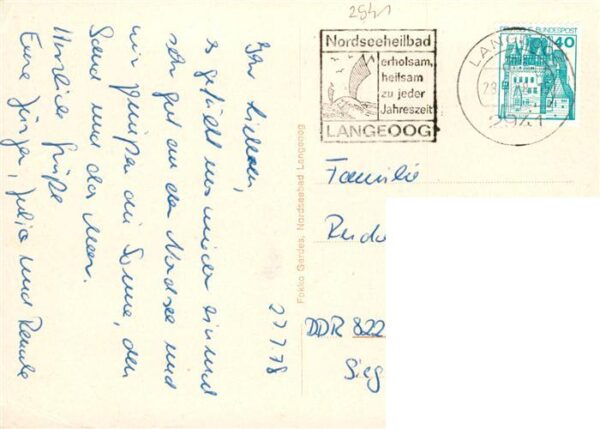 2941
Nordseeheilbad
erholsam,
heilsam
zu jeder
Jahreszeit
LANGEOOG
DEUTSCHE BUNDESPOST
40
2941
27.7.78
Ihr Lieben,
es gefällt uns wieder einmal
sehr gut an der Nordsee und
wir genießen die Sonne, den
Sand und das Meer.
Herzliche Grüße
Eure Jürgen, Julia und Renate
Fokko Gerdes, Nordseebad Langeoog
Familie
Rudo
DDR 822
Sieg